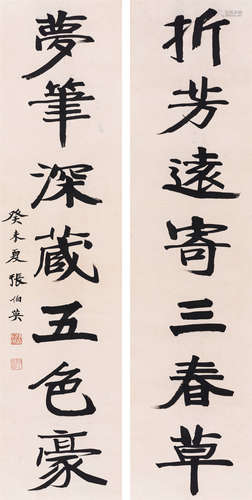 折芳遠寄三春草
夢筆深藏五色豪
癸未夏張伯英